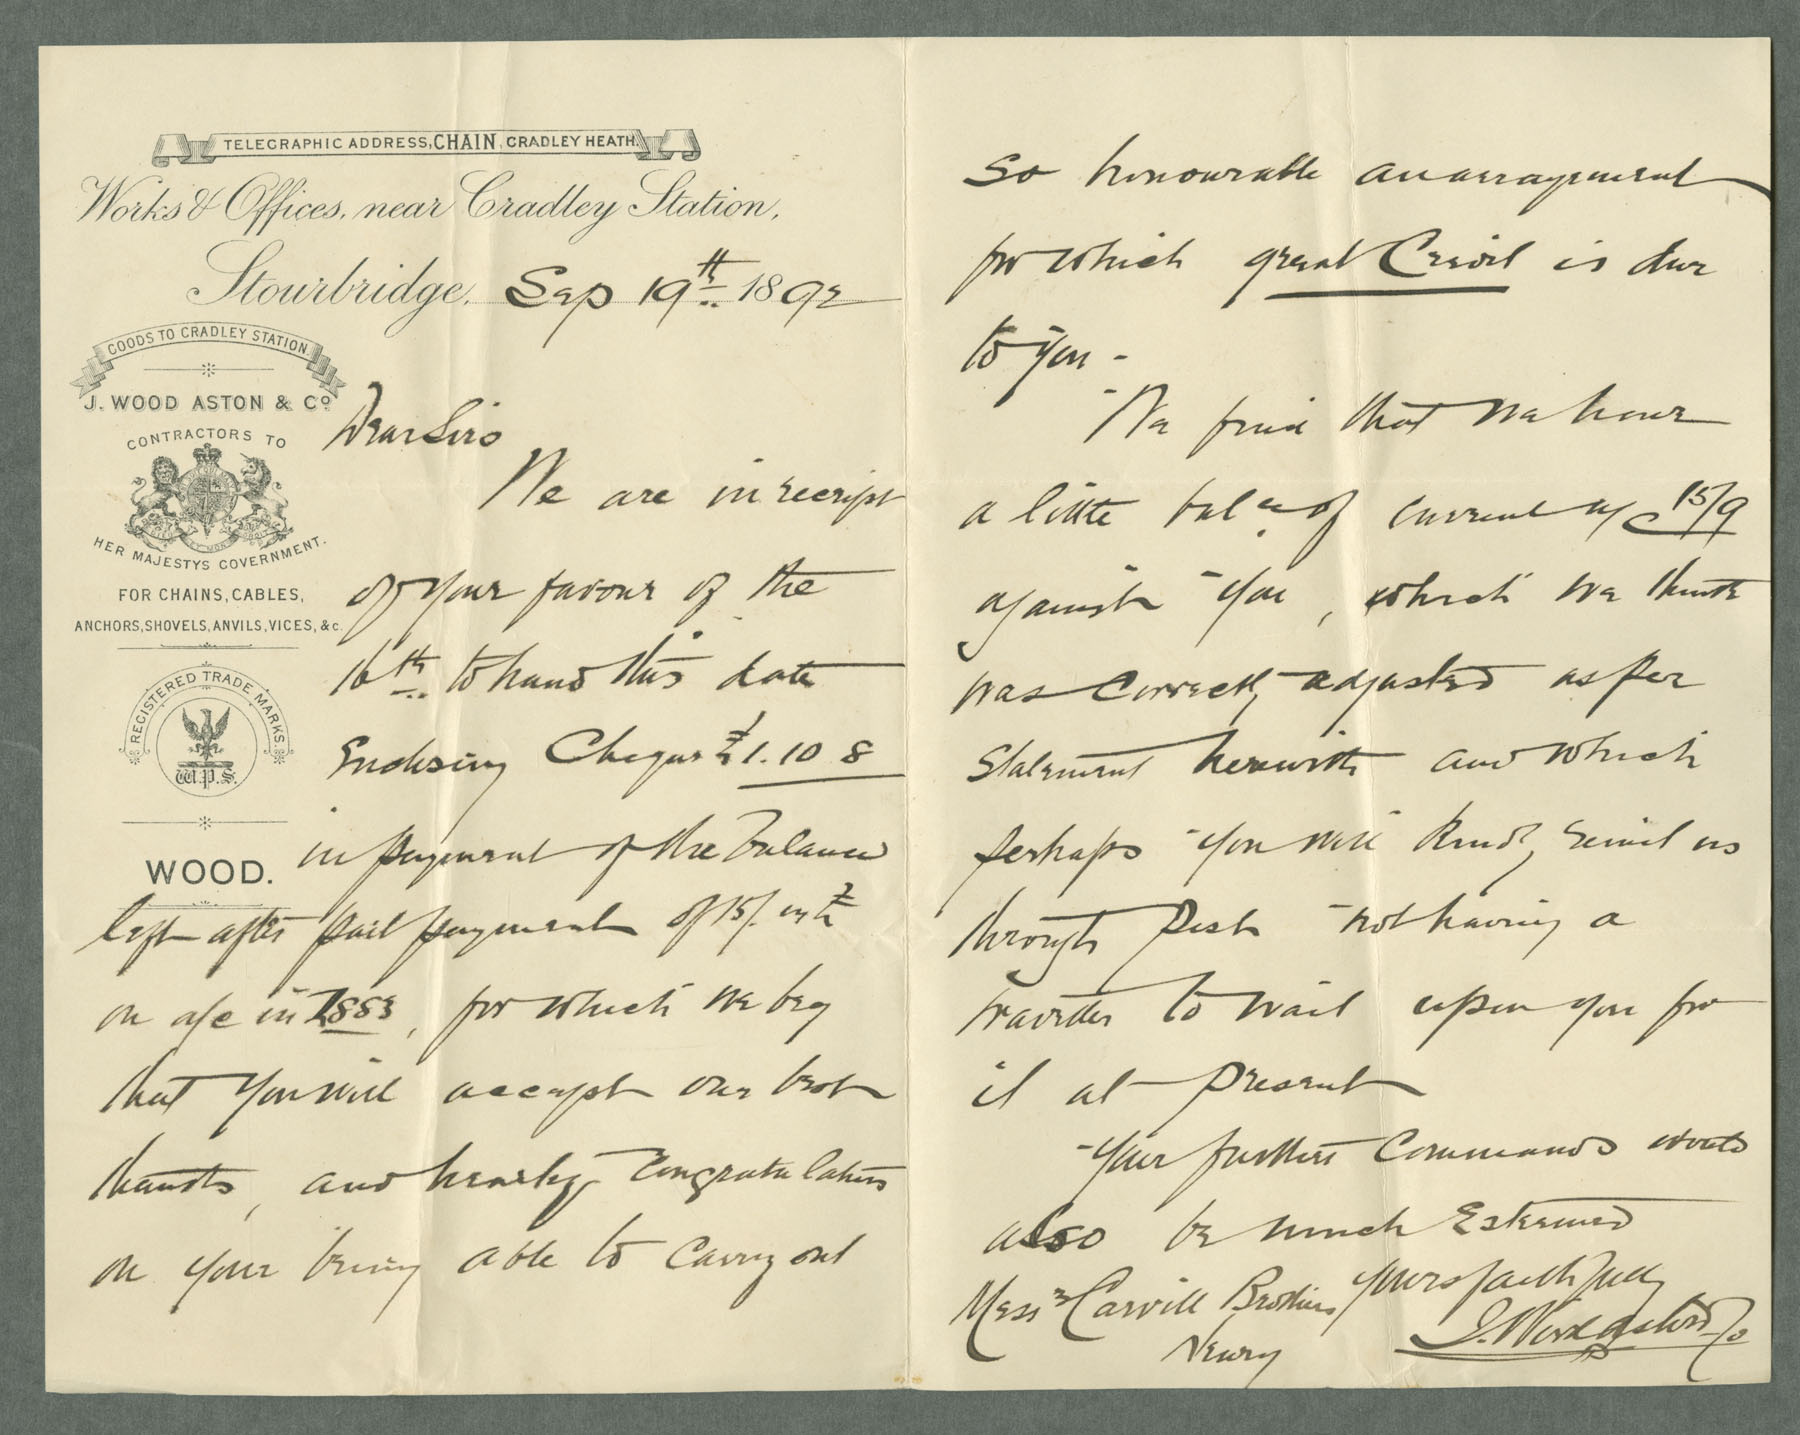 TELEGRAPHIC ADDRESS, CHAIN, CRADLEY HEATH.
Works & Offices, near Cradley Station,
Stourbridge, Sep 19th 1892
GOODS TO CRADLEY STATION.
J. WOOD ASTON & Co
CONTRACTORS TO
HER MAJESTYS GOVERNMENT.
FOR CHAINS, CABLES,
ANCHORS, SHOVELS, ANVILS, VICES, &c.
REGISTERED TRADE MARKS.
W.P.S.
WOOD.
Dear Sirs
We are in receipt
of your favour of the
16th to hand this date
Enclosing Cheque £1.10 8
in payment of the balance
left after part payment of 15/. in £
on a/c in 1883, for which we beg
that you will accept our best
thanks, and hearty congratulations
on your being able to carry out
so honourable an arrangement
for which great Credit is due
to you -
We find that we have
a little balce of current a/c 15/9
against you, which we think
was correctly adjusted as per
Statement herewith and which
perhaps you will kindly remit us
through post not having a
traveller to wait upon you for
it at present
Your further Commands would
also be much Esteemed
Yours faithfully
J. Wood Aston & Co
Messrs Carvill Brothers
Newry